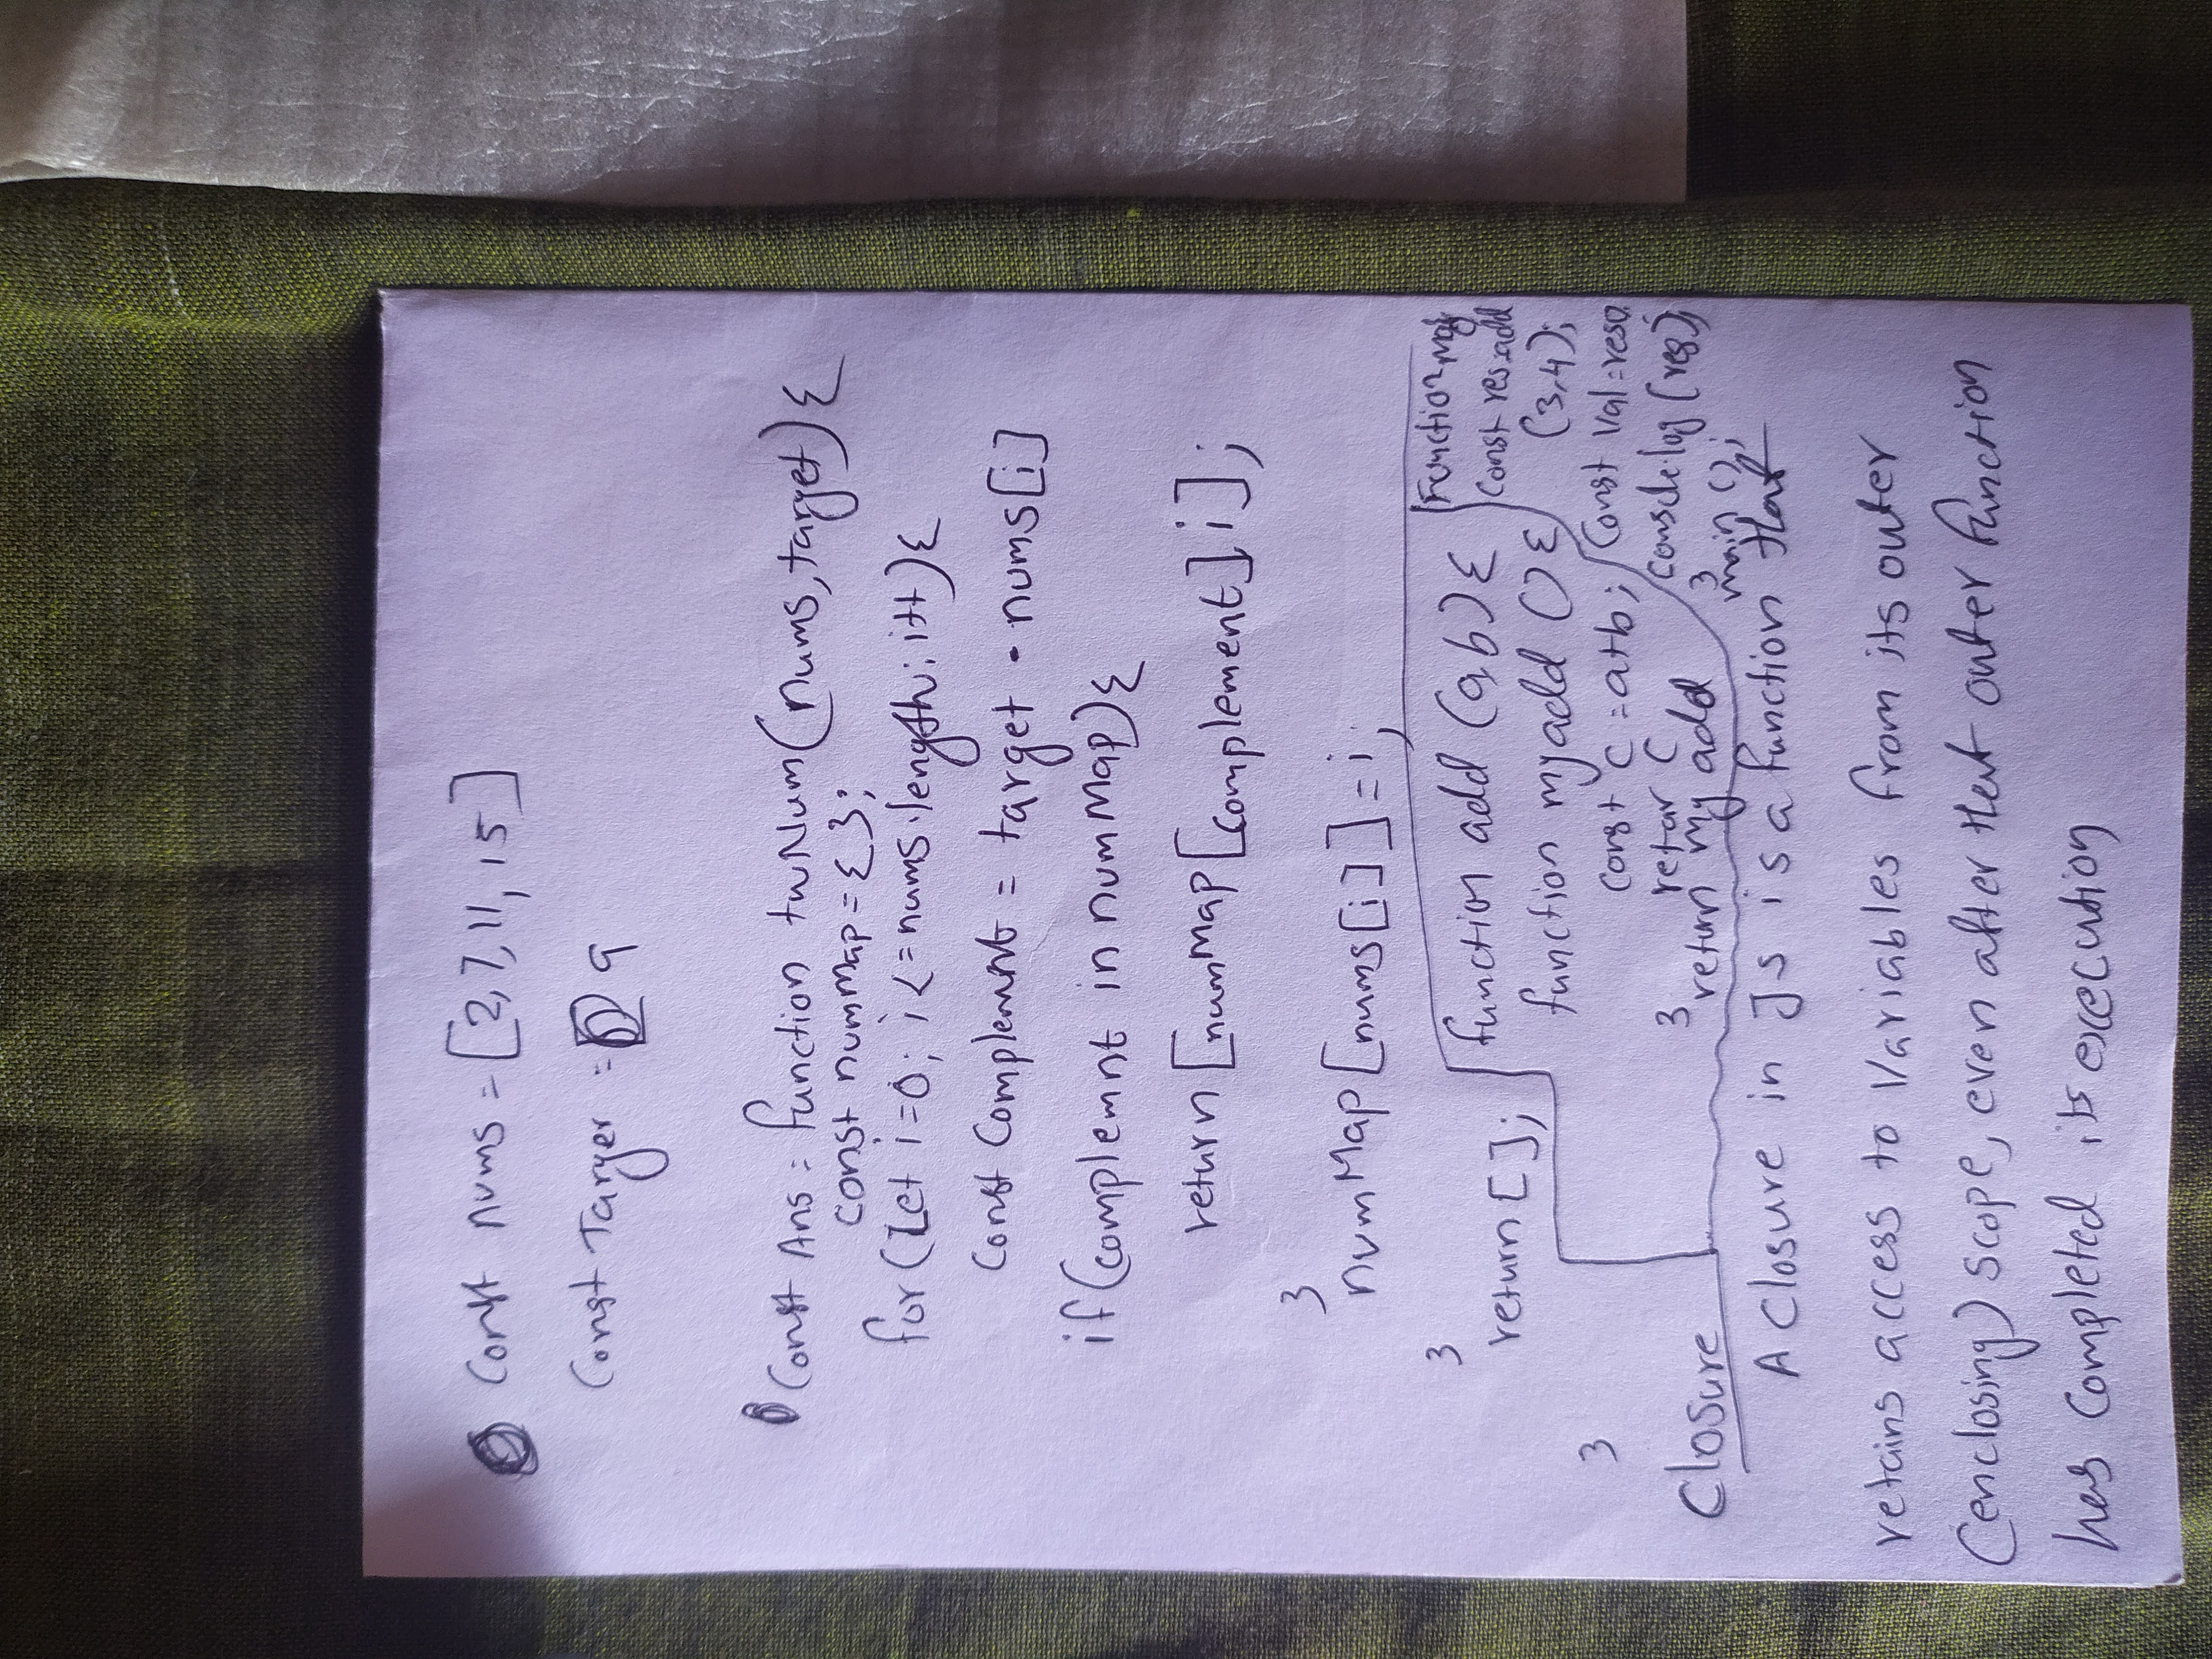 Const nums = [2,7,11,15]
Const Targer = 9
Const Ans = function twNum(nums,target){
const numMap={};
for(let i=0; i<=nums.length; i++){
Const Complemnt = target - nums[i]
if(complemnt in numMap){
return [numMap[complement],i];
}
numMap[nums[i]]=i;
}
return [];
}
function add (a,b){
function myadd (){
const c=a+b;
retur c
}
return my add
Function
Const res=add
(3,4);
Const Val=reso
console.log (res);
}
main ();
Closure
A Closure in Js is a function that
retains access to Variables from its outer
(enclosing) scope, even after that outer function
has completed its execution